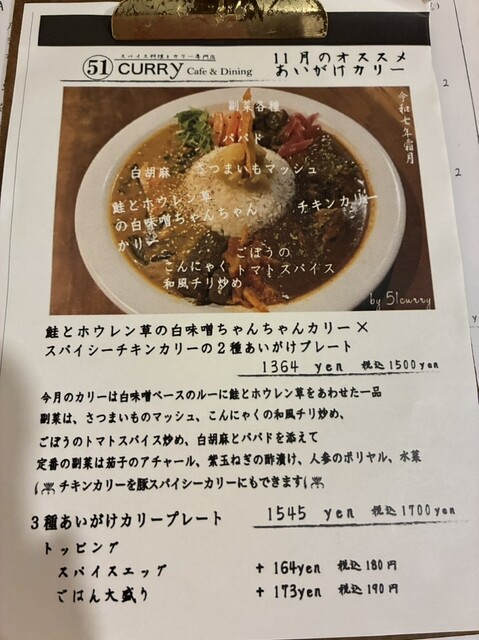 スパイス料理とカリー専門店
51 CURRY Cafe & Dining
11月のオススメ
あいがけカリー
令和七年霜月
副菜各種
パパド
白胡麻 さつまいもマッシュ
鮭とホウレン草
の白味噌ちゃんちゃん
かリー
チキンカリー
ごぼうの
トマトスパイス
こんにゃく
和風チリ炒め
by 51curry
鮭とホウレン草の白味噌ちゃんちゃんカリー×
スパイシーチキンカリーの2種あいがけプレート
1364 yen 税込1500yen
今月のカリーは白味噌ベースのルーに鮭とホウレン草をあわせた一品
副菜は、さつまいものマッシュ、こんにゃくの和風チリ炒め、
ごぼうのトマトスパイス炒め、白胡麻とパパドを添えて
定番の副菜は茄子のアチャール、紫玉ねぎの酢漬け、人参のポリヤル、水菜
チキンカリーを豚スパイシーカリーにもできます
3種あいがけカリープレート 1545 yen 税込1700yen
トッピング
スパイスエッグ +164yen 税込180円
ごはん大盛り +173yen 税込190円